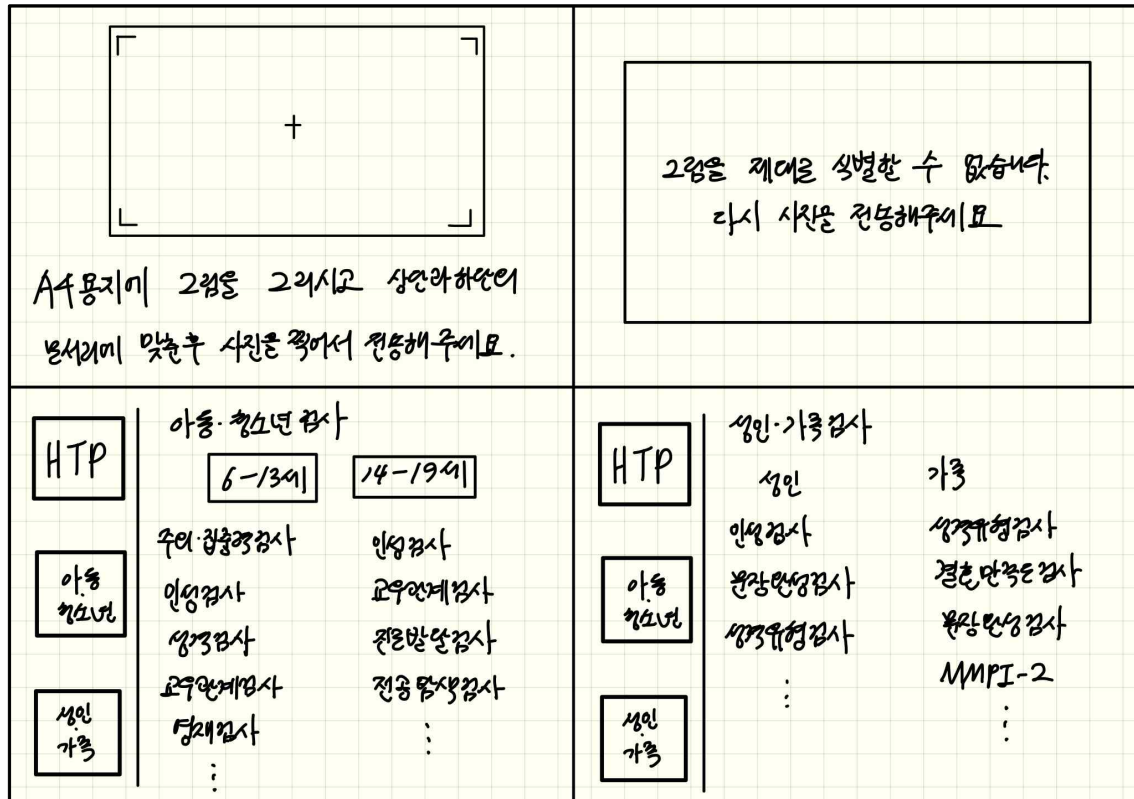 A4용지에 그림을 그리시고 상단과 하단의
모서리에 맞춘후 사진을 찍어서 전송해주세요.
그림을 제대로 식별할 수 없습니다.
다시 사진을 전송해주세요
HTP
아동·청소년
성인·가족
아동·청소년 검사
6-13세
주의·집중력검사
인성검사
성격검사
교우관계검사
영재검사
⋮
14-19세
인성검사
교우관계검사
진로발달검사
전공탐색검사
⋮
HTP
아동·청소년
성인·가족
성인·가족검사
성인
인성검사
문장완성검사
성격유형검사
⋮
가족
성격유형검사
결혼만족도검사
문장완성검사
MMPI-2
⋮